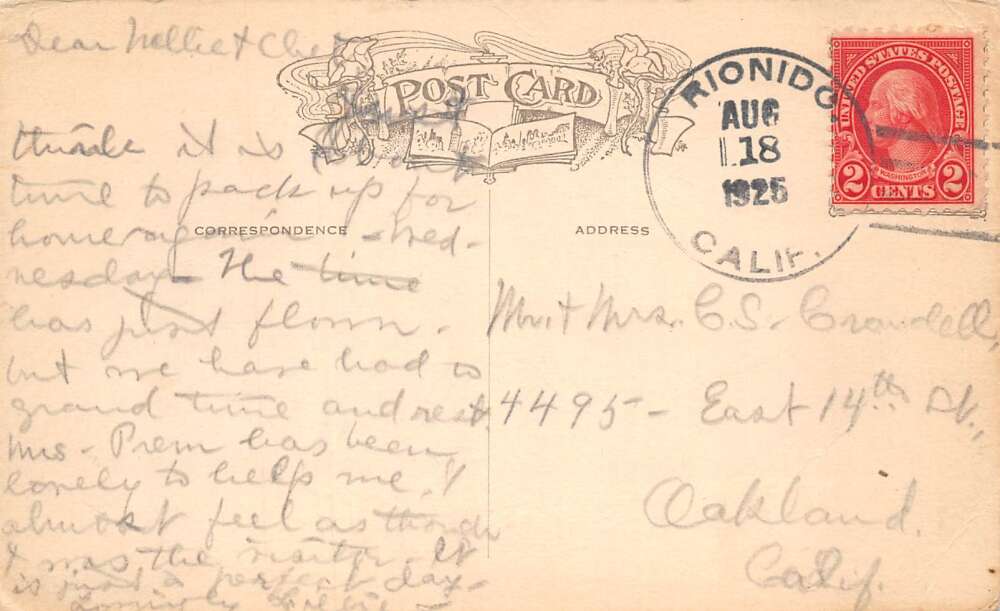 Dear Nellie & Chet
Just
think it is about
time to pack up for
home again - Wed-
nesday - The time
has just flown.
but we have had a
grand time and rest.
Mrs. Prem has been
lovely to help me. I
almost feel as though
I was the visitor. It
is just a perfect day -
Lovingly Lillie -
POST CARD
CORRESPONDENCE
ADDRESS
RIONIDO,
AUG
18
1925
CALIF.
UNITED STATES POSTAGE
WASHINGTON
2 CENTS 2
Mr. & Mrs. C. S. Crandell,
4495 - East 14th St.,
Oakland.
Calif.